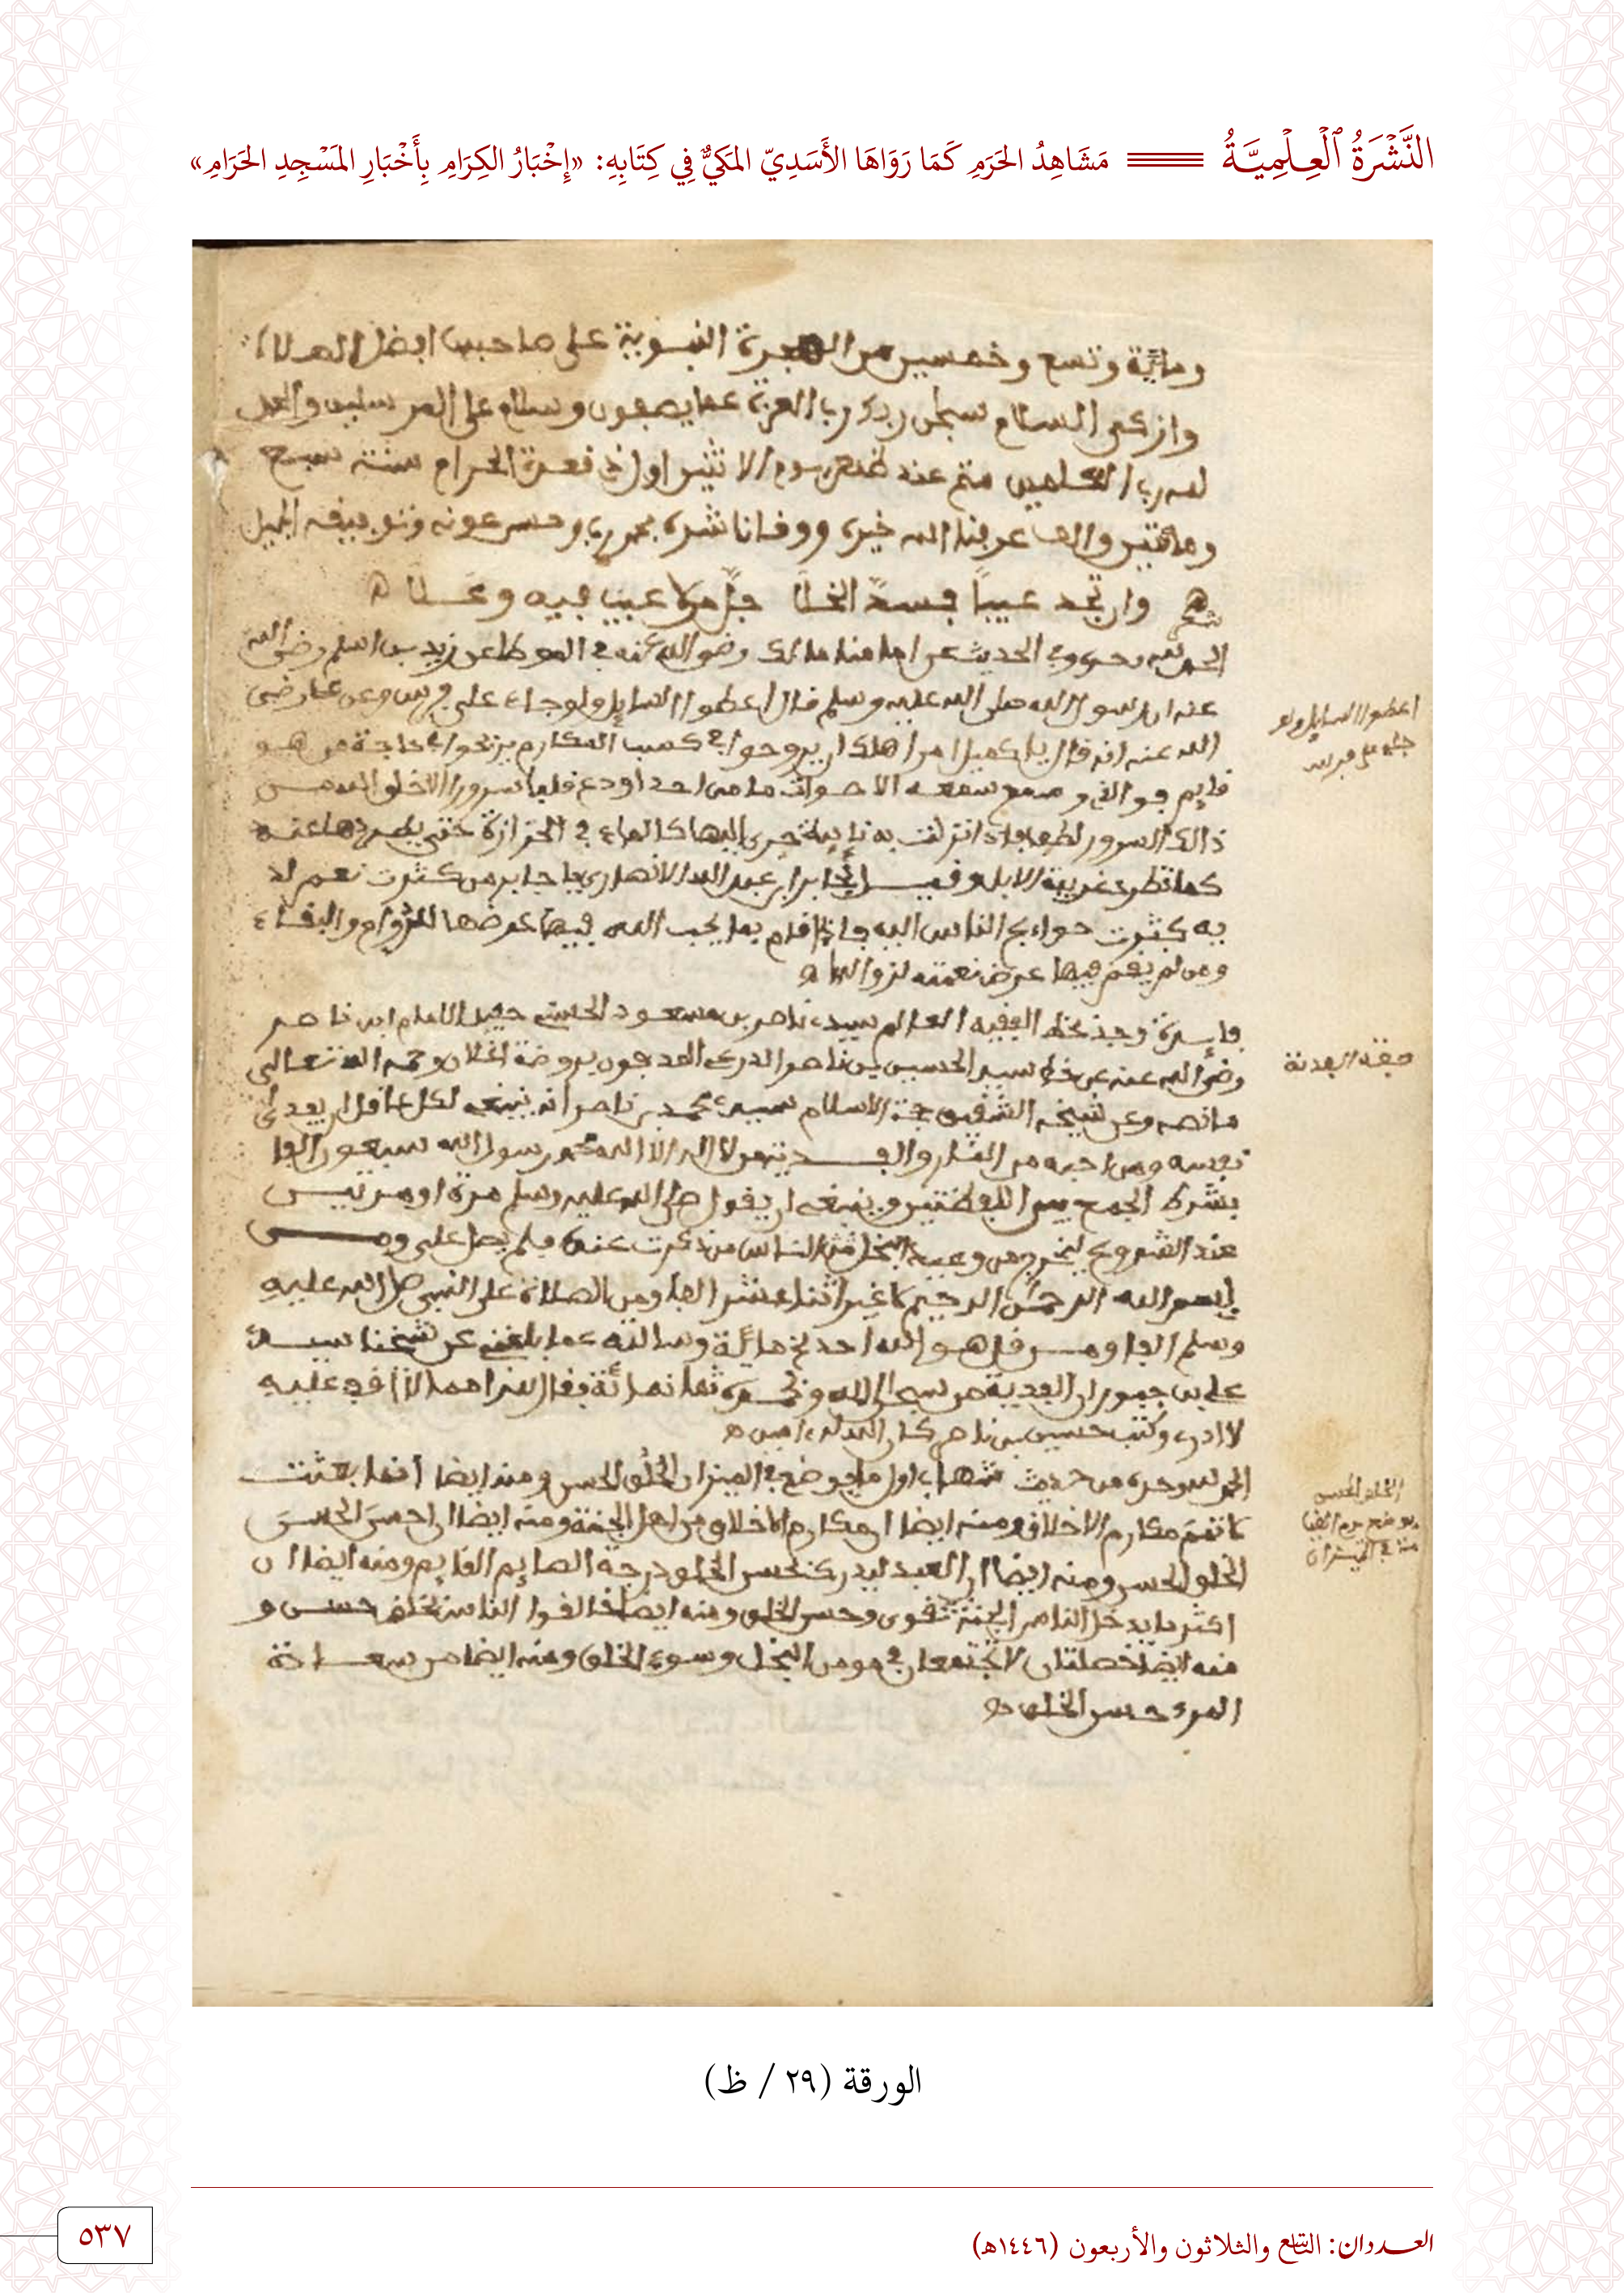 النَّشْرَةُ ٱلْعِلْمِيَّةُ مَشَاهِدُ الحَرَمِ كَمَا رَوَاهَا الأَسَدِيّ المَكيُّ فِي كِتَابِهِ: «إِخْبَارُ الكِرَامِ بِأَخْبَارِ المَسْجِدِ الحَرَامِ»
ومائة وتسع وخمسين من الهجرة النبوية على صاحبها افضل الصلاة
وازكى السلام سبحن ربك رب العزة عما يصفون وسلام على المرسلين والحمد
لله رب العلمين منه عند ظهر يوم الاثنين اول ذي قعدة الحرام سنة سبع
ومائتين والف عرفنا الله خيره ووقانا شره بمحمد وحسن عونه وتوفيقه الجميل
شعر وان تجد عيبا فسد الخلا جل من لا عيب فيه وعلا
الحمد لله وحده وفي الحديث عن امامنا مالك رضي الله عنه في الموطا عن زيد بن اسلم رضي الله
عنه ان رسول الله صلى الله عليه وسلم قال اعطوا السايل ولو جاء على فرس وعن علي رضي
الله عنه انه قال يا كميل امر اهلك ان يروحوا في كسب المكارم ويدلجوا في حاجة من هو
نايم فوالذي وسع سمعه الاصوات ما من احد اودع قلبا سرورا الا خلق الله من
ذالك السرور لطفا فاذا نزلت به نايبة جرى اليها كالماء في انحداره حتى يطردها عنه
كما تطرد غريبة الابل وقيل لجابر ابن عبد الله الانصاري يا جابر من كثرت نعم الله
به كثرت حوايج الناس اليه فاذا قام بما يحب الله فيها عرضها للدوام والبقاء
ومن لم يقم فيها عرض نعمته لزوالها
فايدة وجد بخط الفقيه العالم سيدي ناصر بن مسعود الحسني حفيد الامام ابن ناصر
رضي الله عنه عن خط سيدي الحسين بن ناصر الدرعي المدفون بروضة اغلان رحمه الله تعالى
ما نصه وعن شيخه الشقيق حجة الاسلام سيدي محمد بن ناصر انه ينبغي لكل عاقل ان يفدي
نفسه ومن احبه من النار والفدية من لا اله الا الله محمد رسول الله سبعون الفا
بشرط الجمع بين اللفظتين وينبغي ان يقول صلى الله عليه وسلم مرة او مرتين
عند الشروع ليخرج من وعيد ابخل الناس من ذكرت عنده فلم يصل علي ومن
بسم الله الرحمن الرحيم اثنا عشر الفا ومن الصلاة على النبي صلى الله عليه
وسلم الفا ومن قل هو الله احد مائة وسالته عما بلغني عن شيخنا سيدي
علي بن ان الفدية من سبحان الله وبحمده ثمانمائة فقال
لا ادري وكتب حسين بن ناصر كان الله له ءامين
الحمد لله وحده من حديث شهاب اول ما يوضع في الميزان الخلق الحسن ومنه ايضا انما بعثت
لاتمم مكارم الاخلاق ومنه ايضا ان مكارم الاخلاق من اهل الجنة ومنه ايضا ان احسن الحسن
الخلق الحسن ومنه ايضا ان العبد ليدرك بحسن الخلق درجة الصايم القايم ومنه ايضا ان
اكثر ما يدخل الناس الجنة تقوى وحسن الخلق ومنه ايضا خالقوا الناس بخلق حسن و
منه ايضا خصلتان لا تجتمعان في مومن البخل وسوء الخلق ومنه ايضا من سعادة
المرء حسن الخلق
اعطوا السايل ولو
جاء على فرس
الخلق الحسن
الورقة (٢٩ / ظ)
العددان: التاسع والثلاثون والأربعون (١٤٤٦هـ)
٥٣٧